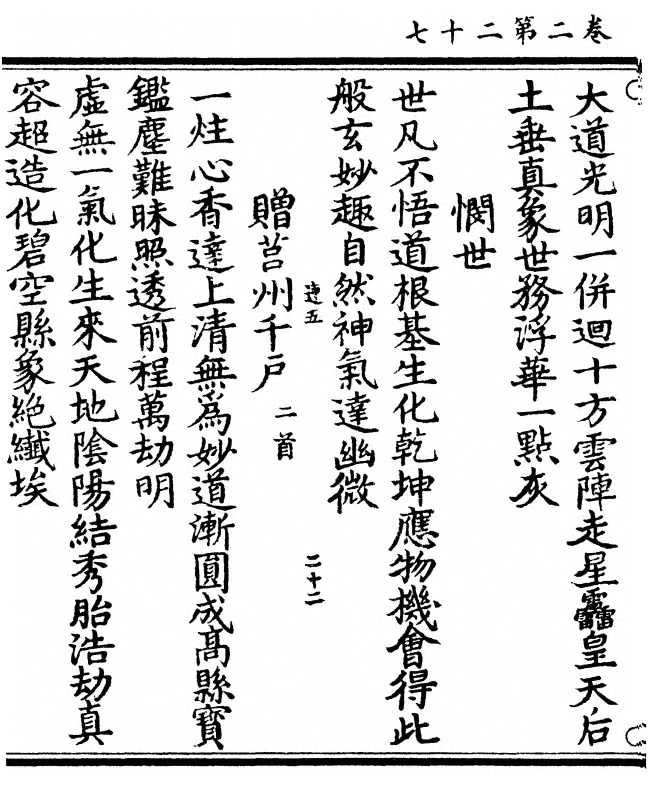 卷二第二十七
大道光明一併迴十方雲陣走星靐皇天后
土垂真象世務浮華一點灰
憫世
世凡不悟道根基生化乾坤應物機會得此
般玄妙趣自然神氣達幽微
五
二十二
贈莒州千戶 二首
一炷心香達上清無爲妙道漸圓成高縣寶
鑑塵難昧照透前程萬劫明
虛無一氣化生來天地陰陽結秀胎浩劫真
容超造化碧空縣象絕纖埃